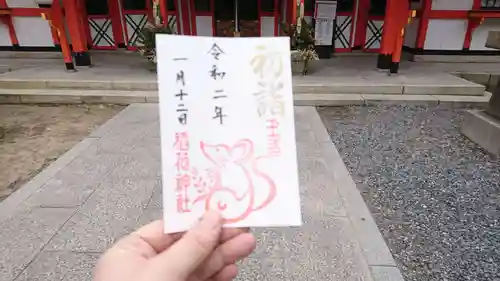 初詣
令和二年
一月十二日
稲荷神社